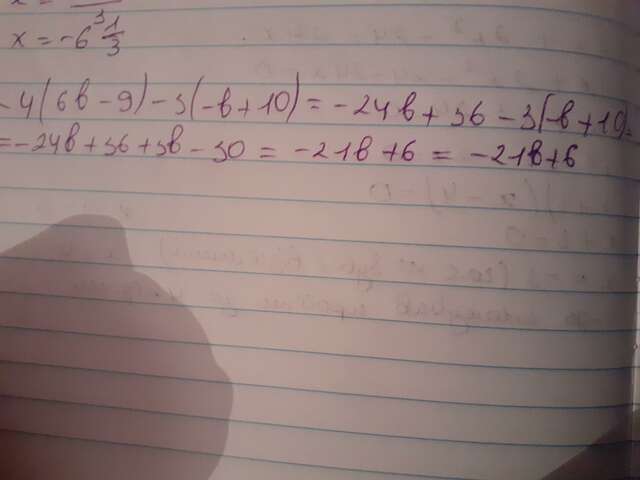 x = -6 1/3
-4(6b-9)-3(-b+10)=-24b+36-3(-b+10)=
=-24b+36+3b-30=-21b+6=-21b+6